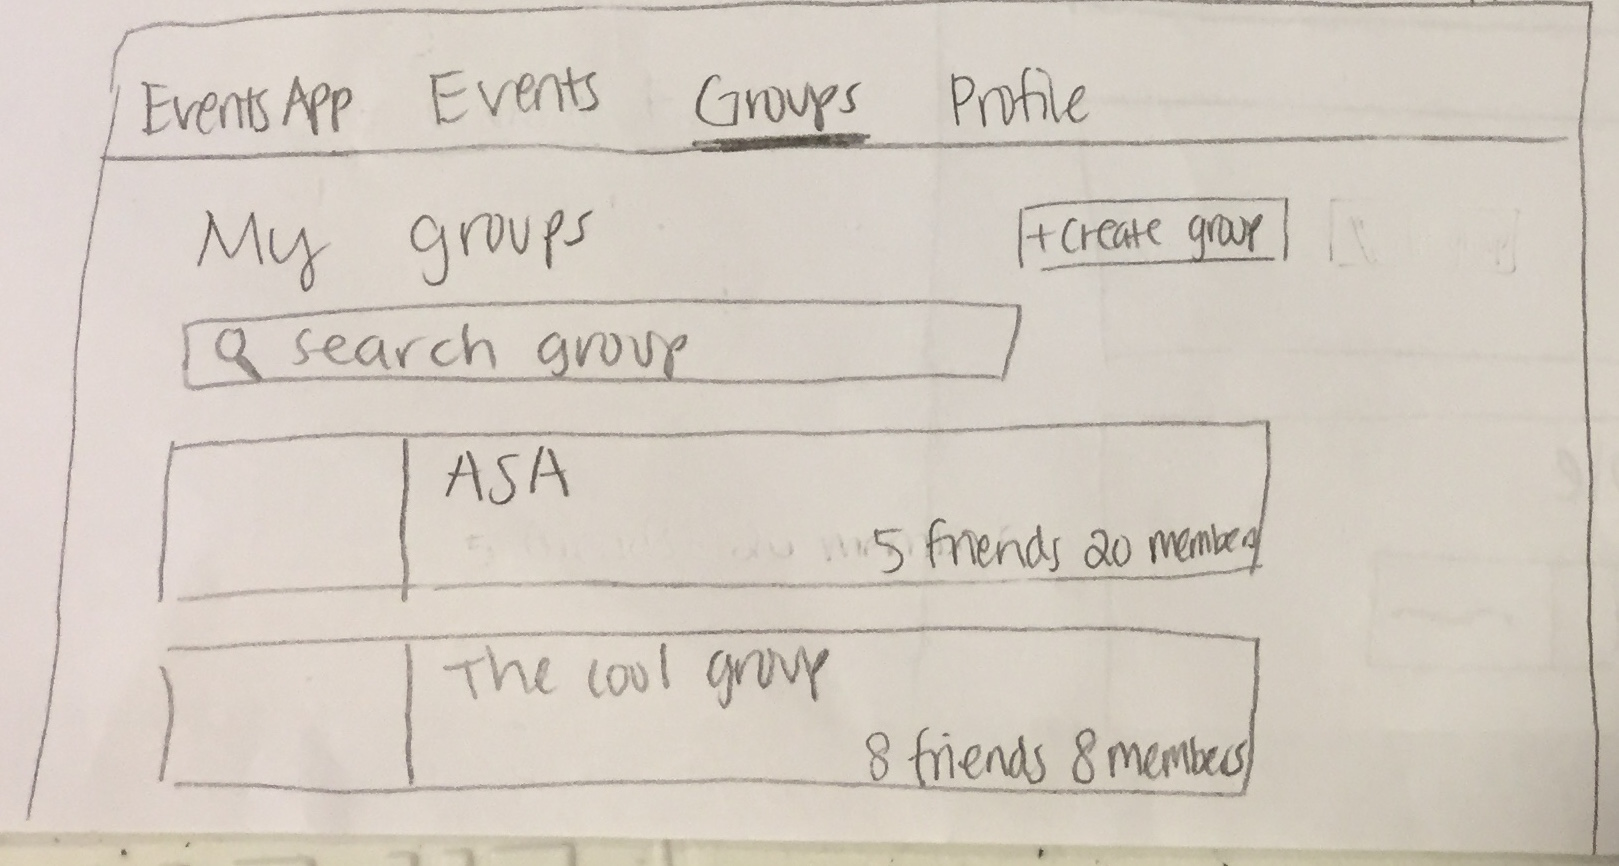 Events App Events Groups Profile
My groups
+create group
search group
ASA
5 friends 20 members
The cool group
8 friends 8 members